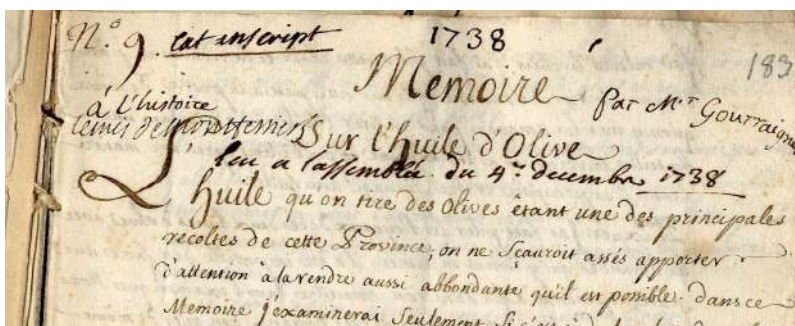 N.° 9. est inscript
1738
183
Mémoire par Mr. Gourraigne
à l'histoire
Sur l'huile d'Olive
leu a l'assemblée du 4.e decembre 1738
L'huile qu'on tire des Olives étant une des principales
récoltes de cette Province, on ne sçauroit assés apporter
d'attention à la rendre aussi abbondante qu'il est possible. dans ce
Memoire j'examinerai Seulement